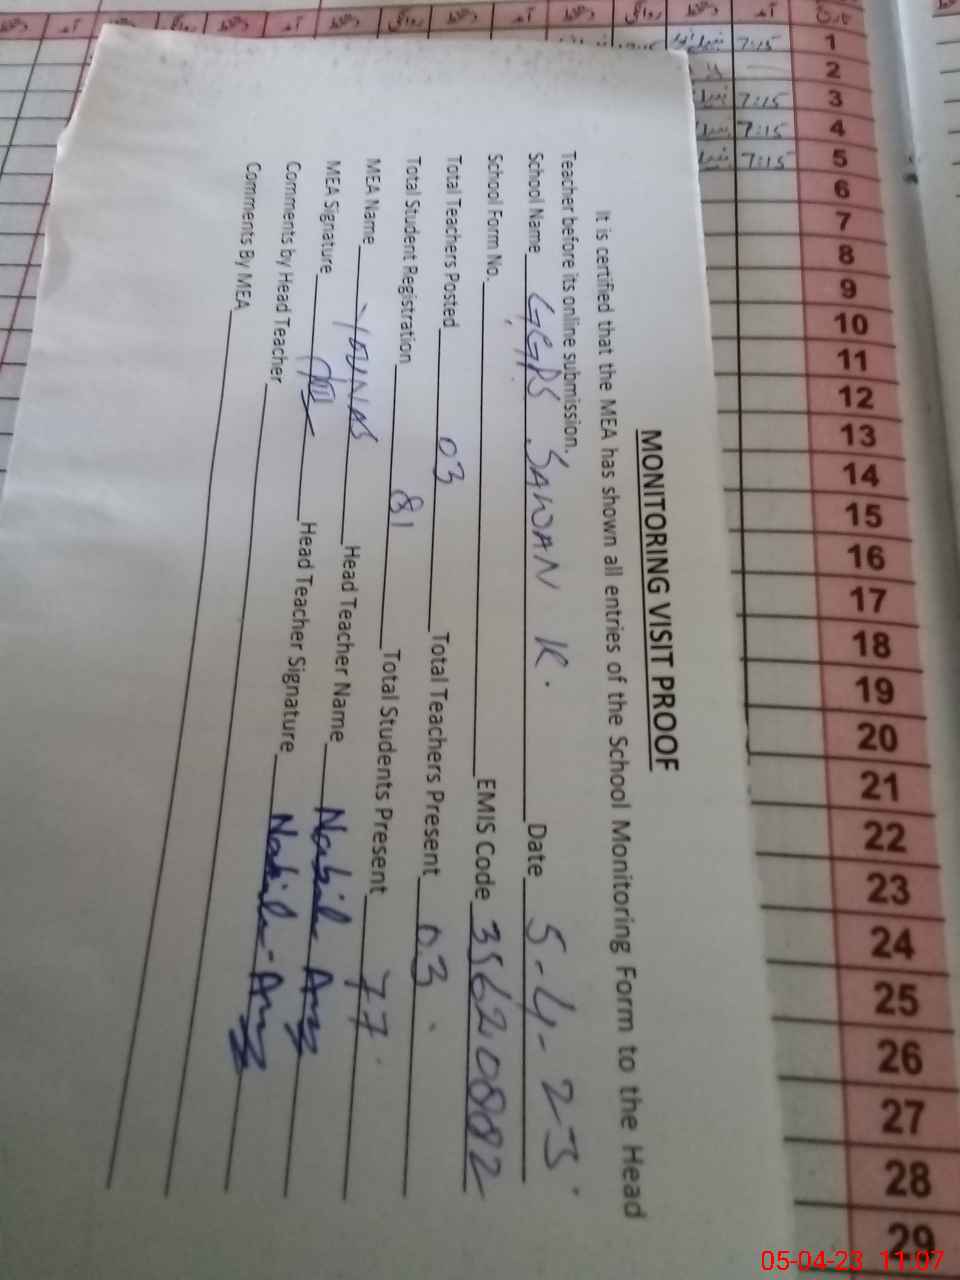 MONITORING VISIT PROOF
It is certified that the MEA has shown all entries of the School Monitoring Form to the Head
Teacher before its online submission.
School Name GGPS SAWAN K. Date 5-4-23
School Form No. EMIS Code 35620882
Total Teachers Posted 03 Total Teachers Present 03
Total Student Registration 81 Total Students Present 77
MEA Name YOUNAS Head Teacher Name Nabila
MEA Signature Head Teacher Signature Nabila
Comments by Head Teacher
Comments By MEA
1 7:15
2
3 7:15
4 7:15
5 7:15
6
7
8
9
10
11
12
13
14
15
16
17
18
19
20
21
22
23
24
25
26
27
28
29
05-04-23 11:07